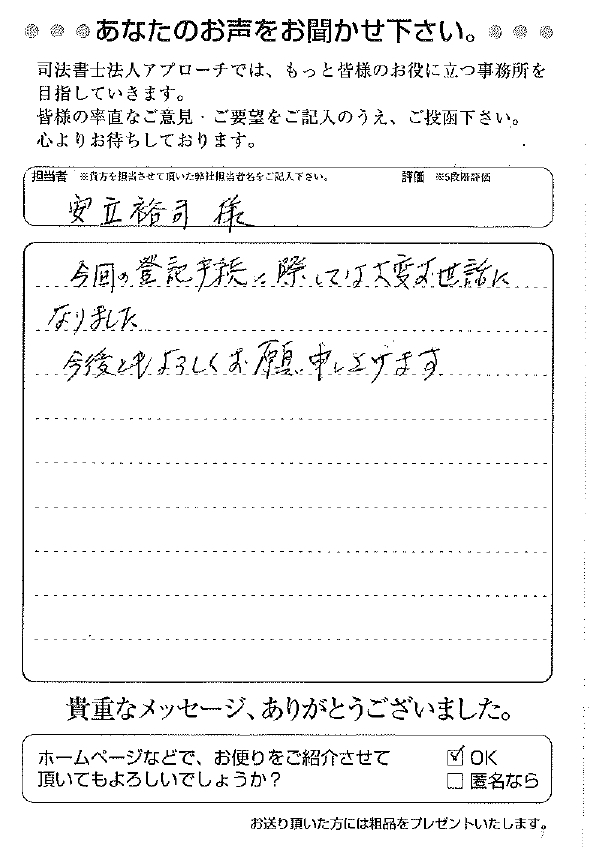 あなたのお声をお聞かせ下さい。
司法書士法人アプローチでは、もっと皆様のお役に立つ事務所を
目指していきます。
皆様の率直なご意見・ご要望をご記入のうえ、ご投函下さい。
心よりお待ちしております。
担当者 ※貴方を担当させて頂いた弊社担当者名をご記入下さい。 評価 ※5段階評価
安立裕司 様
今回の登記手続に際しては大変お世話に
なりました
今後ともよろしくお願い申し上げます
貴重なメッセージ、ありがとうございました。
ホームページなどで、お便りをご紹介させて
頂いてもよろしいでしょうか？
OK
匿名なら
お送り頂いた方には粗品をプレゼントいたします。